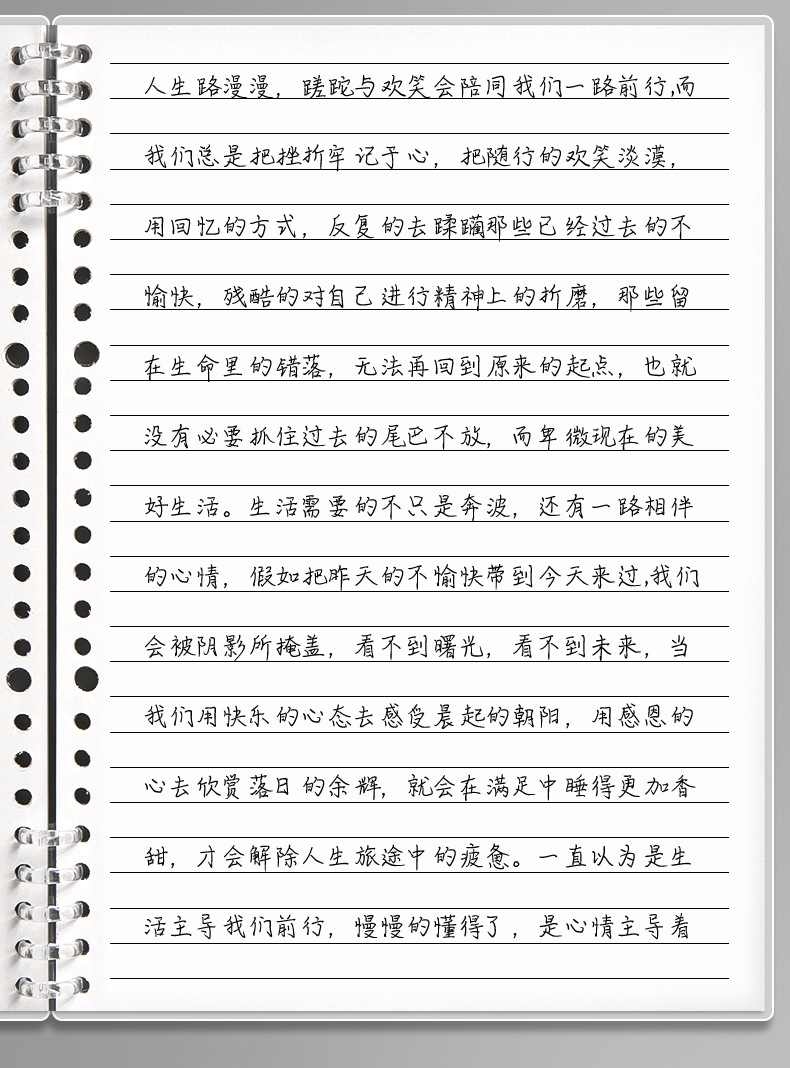 人生路漫漫，蹉跎与欢笑会陪同我们一路前行,而
我们总是把挫折牢记于心，把随行的欢笑淡漠，
用回忆的方式，反复的去蹂躏那些已经过去的不
愉快，残酷的对自己进行精神上的折磨，那些留
在生命里的错落，无法再回到原来的起点，也就
没有必要抓住过去的尾巴不放，而卑微现在的美
好生活。生活需要的不只是奔波，还有一路相伴
的心情，假如把昨天的不愉快带到今天来过,我们
会被阴影所掩盖，看不到曙光，看不到未来，当
我们用快乐的心态去感受晨起的朝阳，用感恩的
心去欣赏落日的余辉，就会在满足中睡得更加香
甜，才会解除人生旅途中的疲惫。一直以为是生
活主导我们前行，慢慢的懂得了，是心情主导着